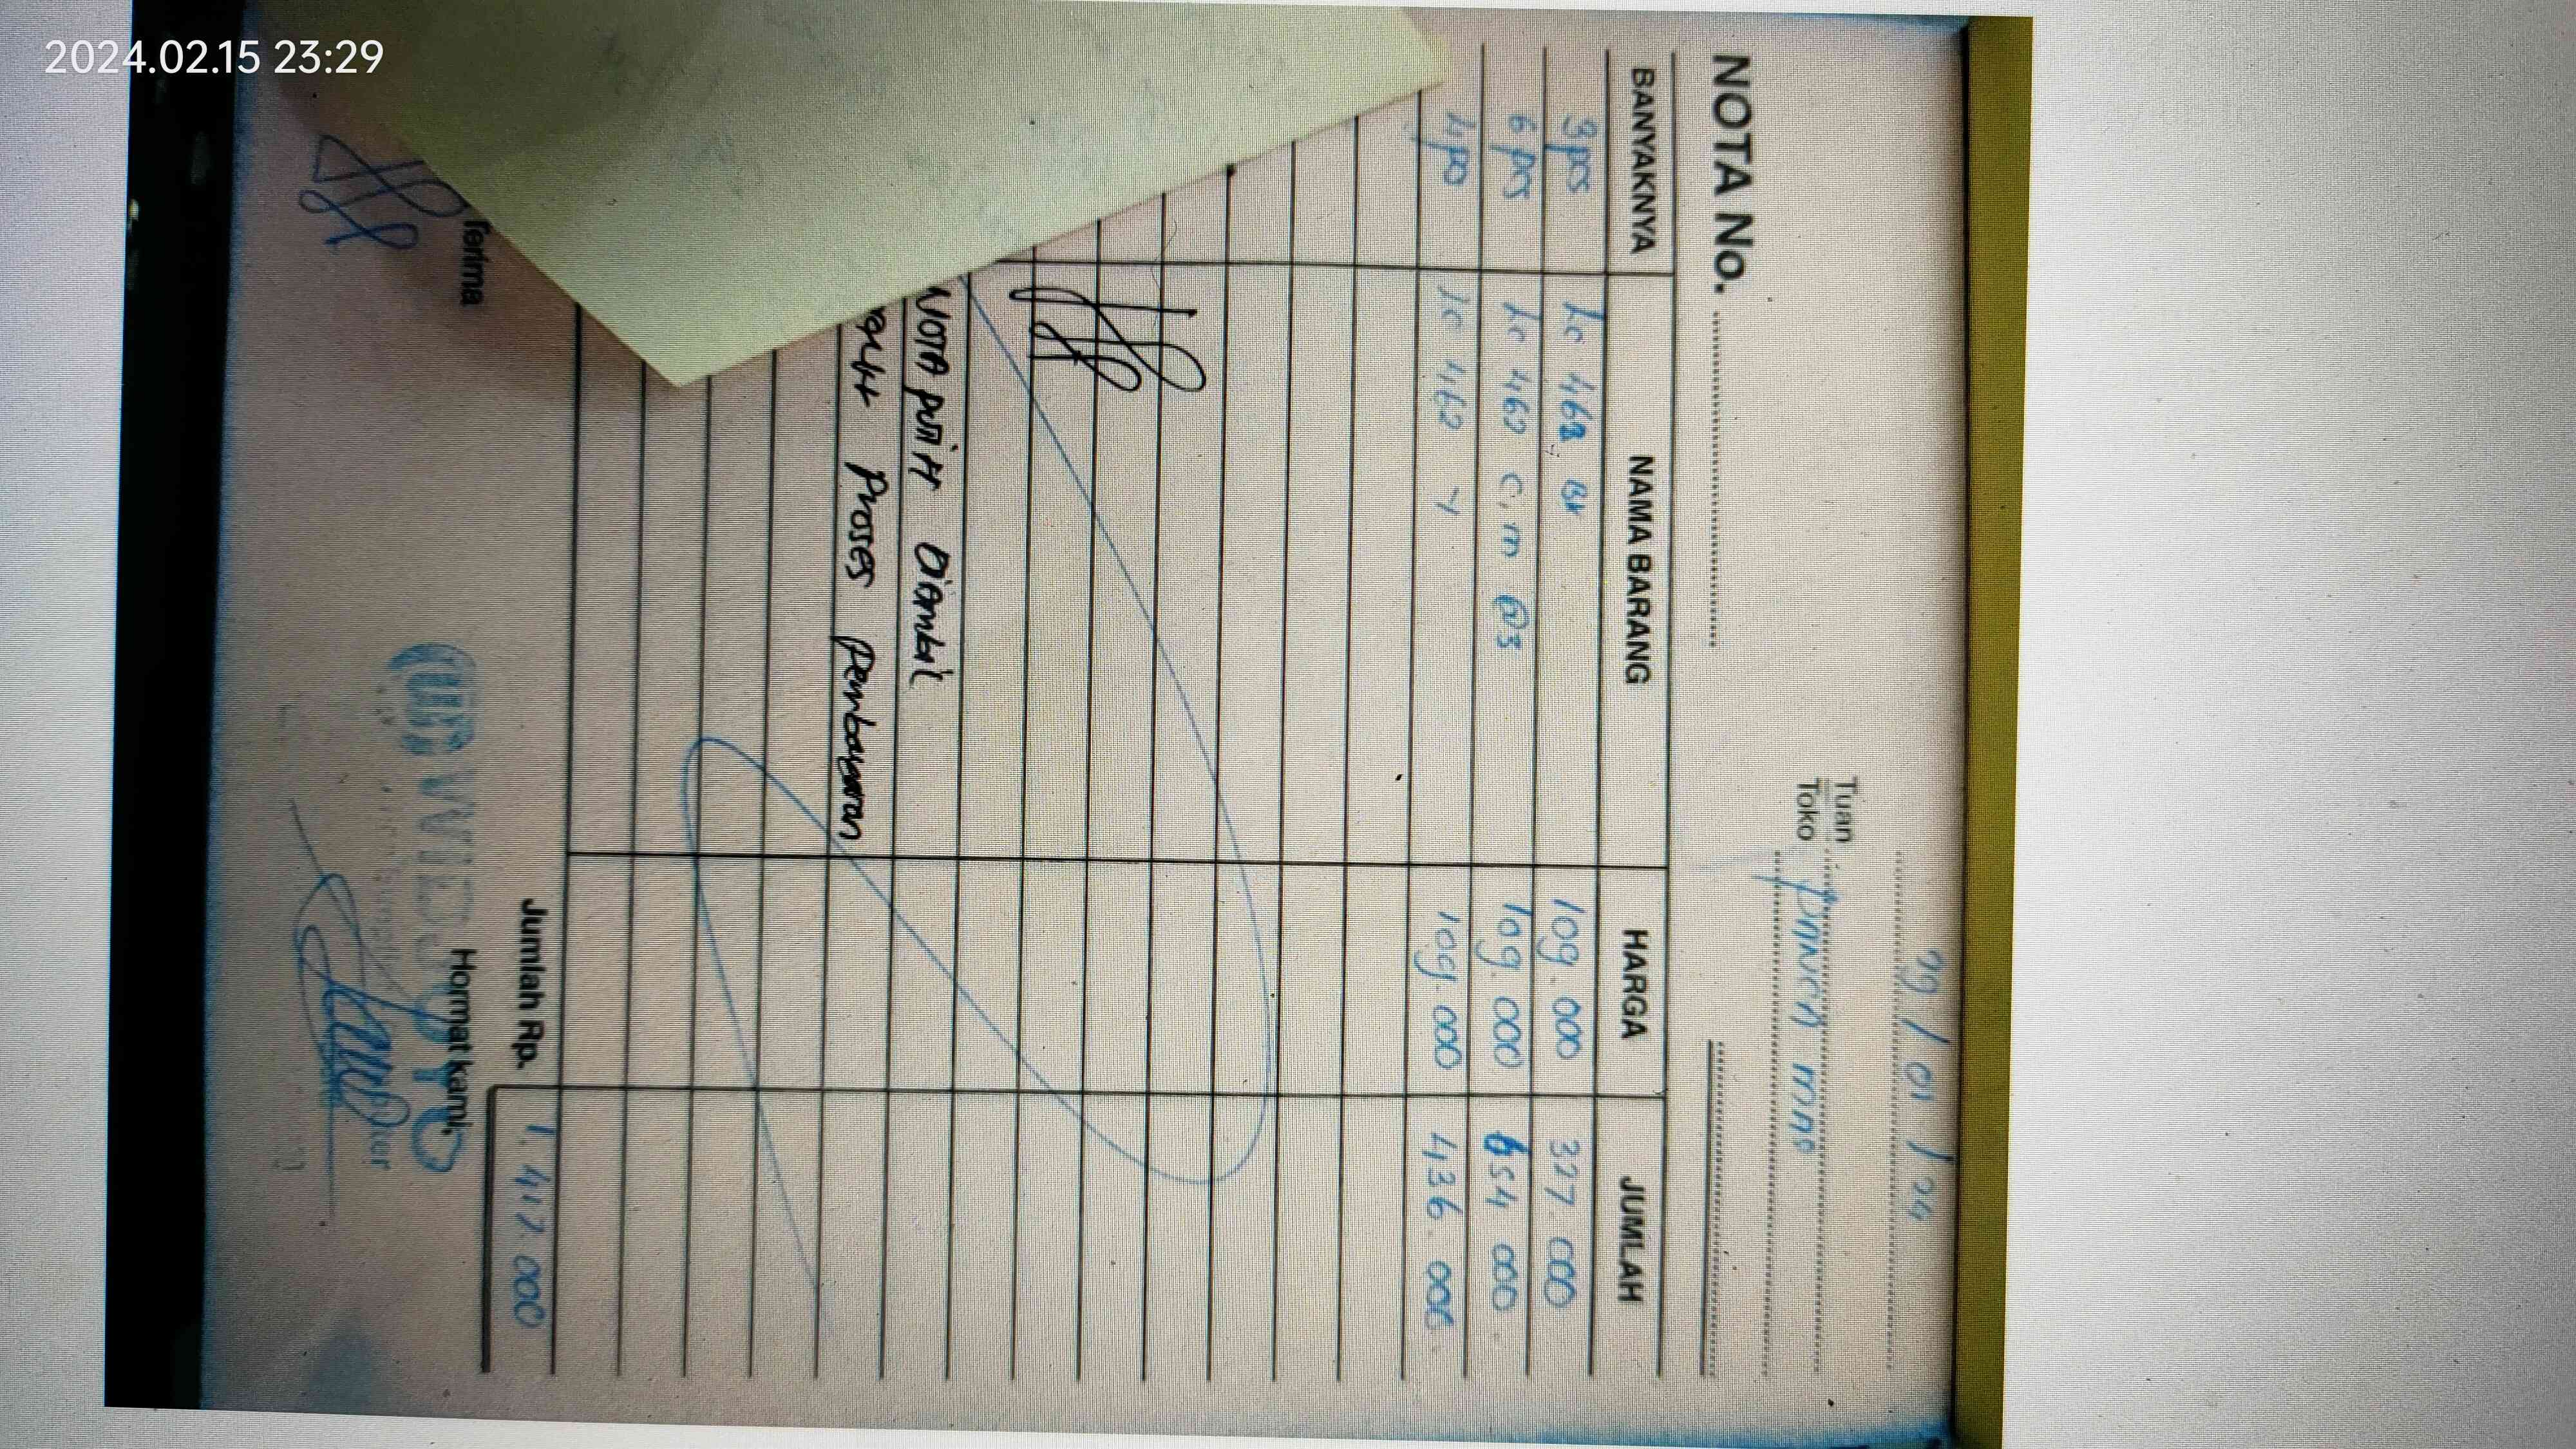 2024.02.15 23:29
29 / 01 / 24
Tuan
Toko
NOTA No.
BANYAKNYA NAMA BARANG HARGA JUMLAH
3 pcs Lc 462 BK 109.000 327.000
6 pcs Lc 462 C, m @3 109.000 654.000
4 pcs Lc 462 Y 109.000 436.000
NOTA PUTIH Diambil
Proses Pembayaran
Jumlah Rp. 1.417.000
Terima Hormat kami,